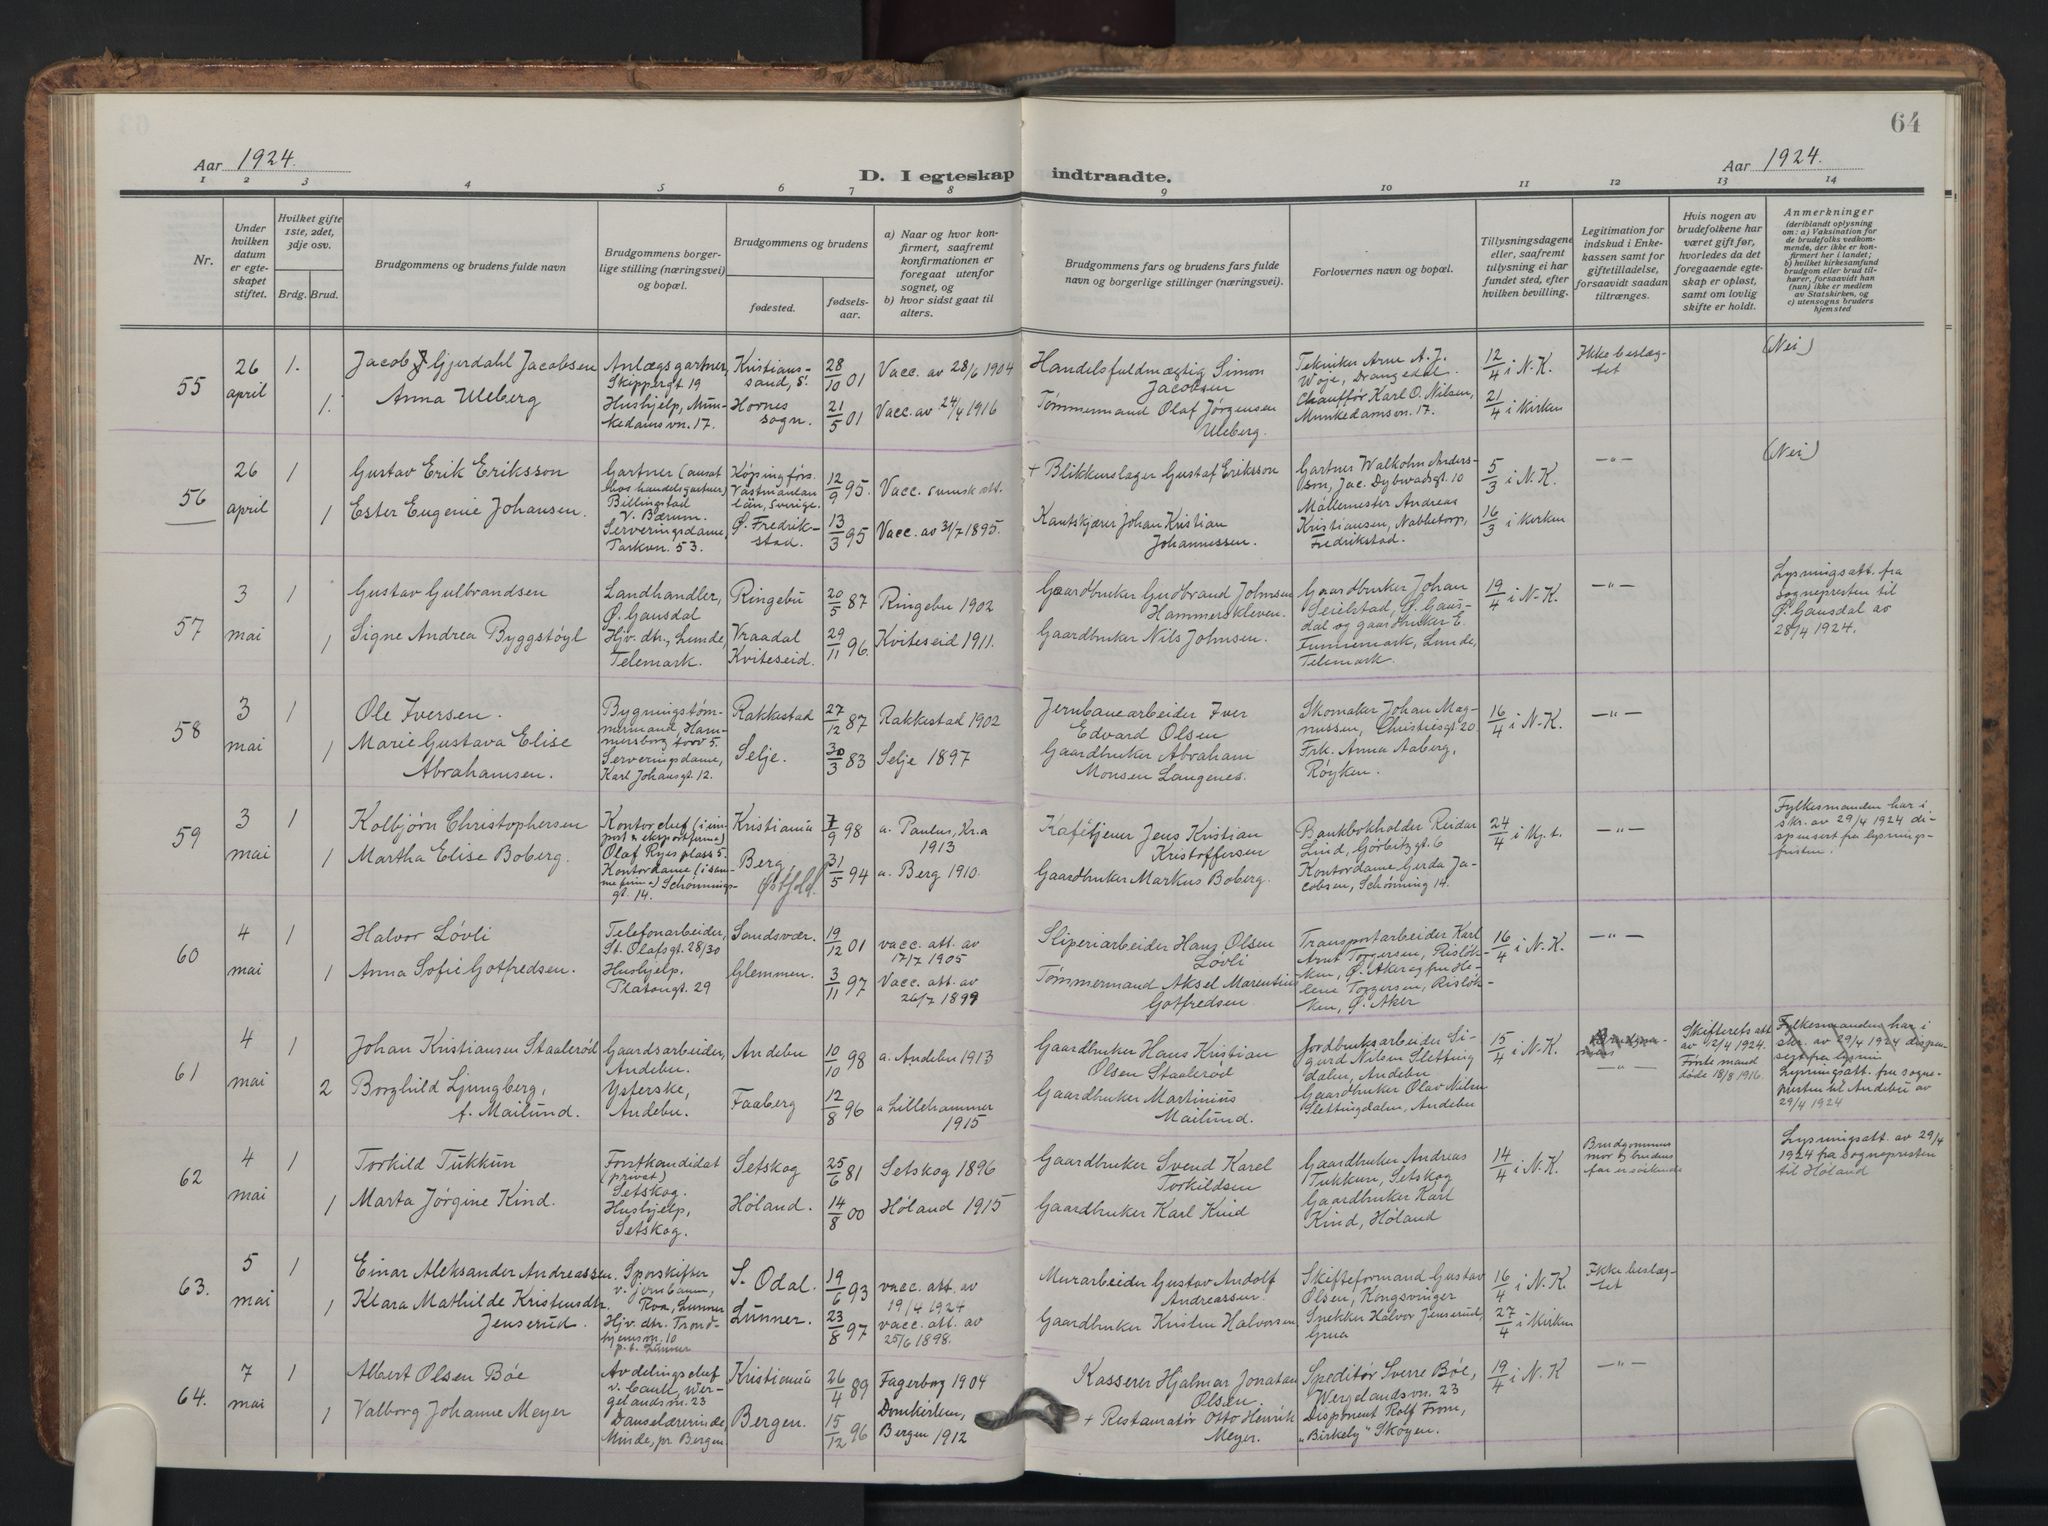 64
Aar 1924.
D. I egteskap indtraadte.
Aar 1924.
1 2 3 4 5 6 7 8 9 10 11 12 13 14
Nr.
Under hvilken datum er egteskapet stiftet.
Hvilket gifte 1ste, 2det, 3dje osv.
Brdg. Brud.
Brudgommens og brudens fulde navn
Brudgommens borgerlige stilling (næringsvei) og bopæl.
Brudgommens og brudens
fødested.
fødselsaar.
a) Naar og hvor konfirmert, saafremt konfirmationen er foregaat utenfor sognet, og
b) hvor sidst gaat til alters.
Brudgommens fars og brudens fars fulde navn og borgerlige stillinger (næringsvei).
Forlovernes navn og bopæl.
Tillysningsdagene eller, saafremt tillysning ei har fundet sted, efter hvilken bevilling.
Legitimation for indskud i Enkekassen samt for giftetilladelse, forsaavidt saadan tiltrænges.
Hvis nogen av brudefolkene har været gift før, hvorledes da det foregaaende egteskap er opløst, samt om lovlig skifte er holdt.
Anmerkninger (deriblandt oplysning om: a) Vaksination for de brudefolks vedkommende, der ikke er konfirmert her i landet; b) hvilket kirkesamfund brudgom eller brud tilhører, forsaavidt han (hun) ikke er medlem av Statskirken, og c) utensogns bruders hjemsted
55 26 april 1. Jacob Gjerdahl Jacobsen Anlægsgartner, Skippergt 19 Kristianssand, S. 28/10 01 Vacc. av 28/6 1904 Handelsfuldmægtig Simon Jacobsen Tekniker Arne A. J. Woje, Drangedal. 12/4 i N.K. Ikke beslægtet (Nei)
1. Anna Uleberg Hushjelp, Munkedamsvn. 17. Hornes sogn. 21/5 01 Vacc. av 24/4 1916 Tømmermand Olaf Jørgensen Uleberg. Chauffør Karl O. Nilsen, Munkedamsvn. 17. 21/4 i Kirken
56 26 april 1 Gustav Erik Eriksson Gartner (ansat hos handelsgartner) Billingstad v. Bærum. Køping förs. Västmanlan län, Sverige. 12/9 95. Vacc. svensk att. + Blikkenslager Gustaf Eriksson Gartner Walkohn Andersson, Jac. Dybwadsgt. 10 5/3 i N.K. —"— (Nei)
1 Ester Eugenie Johansen. Serveringsdame, Parkvn. 53. Ø. Fredrikstad. 13/3 95 Vacc. av 31/7 1895. Kantskjærer Johan Kristian Johannessen. Møllemester Andreas Kristiansen, Nabbetorp, Fredrikstad. 16/3 i Kirken
57 3 mai 1 Gustav Gulbrandsen Landhandler, Ø. Gausdal Ringebu 20/5 87 Ringebu 1902 Gaardbruker Gudbrand Johnsen Hammerskleven. Gaardbruker Johan Seielstad, Ø. Gausdal og gaardbruker E. Funnemark, Lunde, Telemark. 19/4 i N.K. —"— Lysningsatt. fra sognepresten til Ø. Gausdal av 28/4 1924.
1 Signe Andrea Byggstøyl Hjv. dtr., Lunde, Telemark. Vraadal Kviteseid. 29/11 96. Kviteseid 1911. Gaardbruker Nils Johnsen.
58 3 mai 1 Ole Iversen. Bygningstømmermand, Hammersborg torv 5. Rakkestad 27/12 87 Rakkestad 1902 Jernbanearbeider Iver Edvard Olsen Skomaker Johan Magnussen, Christiesgt 20 16/4 i N.K. —"—
1 Marie Gustava Elise Abrahamsen. Serveringsdame, Karl Johansgt. 12. Selje. 30/3 83 Selje 1897 Gaardbruker Abraham Monsen Langenes. Frk. Anna Aaberg, Røyken.
59 3 mai 1 Kolbjørn Christophersen Kontorchef (i import & eksportfirma) Olaf Ryes plass 5. Kristiania 7/9 98 a. Paulus, Kr.a 1913 Kafétjener Jens Kristian Kristoffersen Bankbokholder Reidar Lind, Gørbitzgt. 6 24/4 i Kg.t. —"— Fylkesmanden har i skr. av 29/4 1924 dispensert fra lysningsfristen.
1 Martha Elise Boberg. Kontordame (i samme firma) Schønningsgt. 14. Berg Østfold. 31/5 94 a. Berg 1910. Gaardbruker Markus Boberg. Kontordame Gerda Jacobsen, Schønning 14.
60 4 mai 1 Halvor Løvli Telefonarbeider, St. Olafsgt. 28/30 Sandsvær. 19/12 01 vacc. att. av 17/7 1905 Sliperiarbeider Hans Olsen Løvli Transportarbeider Karl Arnt Torgersen, Risløkken, Ø. Aker og fru Helene Torgersen, Risløkken, Ø. Aker 16/4 i N.K. —"—
1 Anna Sofie Gotfredsen. Hushjelp, Platousgt. 29 Glemmen. 3/11 97 Vacc. att. av 26/7 1899 Tømmermand Aksel Marentius Gotfredsen.
61 4 mai 1 Johan Kristiansen Staalerød Gaardsarbeider, Andebu. Andebu 10/10 98 a. Andebu 1913 Gaardbruker Hans Kristian Olsen Staalerød Jordbruksarbeider Sigurd Nilsen Slettingdalen, Andebu 15/4 i N.K. —"— Skifterets att. av 12/4 1924. Første mand døde 18/8 1916. Fylkesmanden har i skr. av 29/4 1924 dispensert fra lysnin
Lysningsatt. fra sognepresten til Andebu av 29/4 1924
2 Borghild Ljungberg, f. Mailund. Ysterske, Andebu. Faaberg 12/8 96 a Lillehammer 1915 Gaardbruker Martinius Mailund. Gaardbruker Olav Nilsen Slettingdalen, Andebu
62 4 mai 1 Torkild Tukkun Forstkandidat (privat) Setskog. Setskog 25/6 81 Setskog 1896 Gaardbruker Svend Karel Torkildsen Gaardbruker Andreas Tukkun, Setskog 14/4 i N.K. Brudgommens mor og brudens far er søskende Lysningsatt. av 29/4 1924 fra sognepresten til Høland
1 Marta Jørgine Kind. Hushjelp, Setskog. Høland. 14/8 00 Høland 1915 Gaardbruker Karl Kind Gaardbruker Karl Kind, Høland
63. 5 mai 1 Einar Aleksander Andreassen. Sporskifter v. Jernbanen, Roa, Lunner S. Odal. 19/6 93 vacc. att. av 19/4 1924 Murarbeider Gustav Andolf Andreassen. Skifteformand Gustav Olsen, Kongsvinger 16/4 i N.K. Ikke beslægtet
1 Klara Mathilde Kristensdtr. Jenserud. Hjv. dtr. Trondhjemsvn. 10 p.t. Lunner Lunner. 23/8 97 vacc. att. av 25/6 1898. Gaardbruker Kristen Halvorsen Snekker Halvor Jenserud, Grua 27/4 i Kirken
64. 7 mai 1 Albert Olsen Bøe Avdelingschef v. bank, Wergelandsvn. 23 Kristiania 26/4 89 Fagerborg 1904 Kasserer Hjalmar Jonatan Olsen. Speditør Sverre Bøe, Wergelandsvn. 23 19/4 i N.K —"—
1 Valborg Johanne Meyer Danselærerinde, Minde, pr Bergen Bergen. 15/12 96 Domkirken, Bergen 1912 + Restauratør Otto Henrik Meyer. Disponent Rolf From, "Birkely" Skøyen.